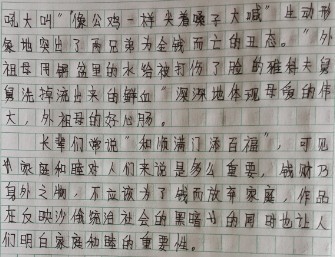 吼大叫”“像公鸡一样夹着嗓子大喊”生动形
象地突出了两兄弟为金钱而亡的丑态。“外
祖母用铜盆里的水给被打伤了脸的雅科夫舅
舅洗掉流出来的鲜血”深深地体现母爱的伟
大，外祖母的好心肠。
长辈们常说“和顺满门添百福”，可见
家庭和睦对人们来说是多么重要，钱财乃
身外之物，不应该为了钱而放弃家庭，作品
在反映沙俄统治社会的黑暗的同时也让人
们明白家庭和睦的重要性。